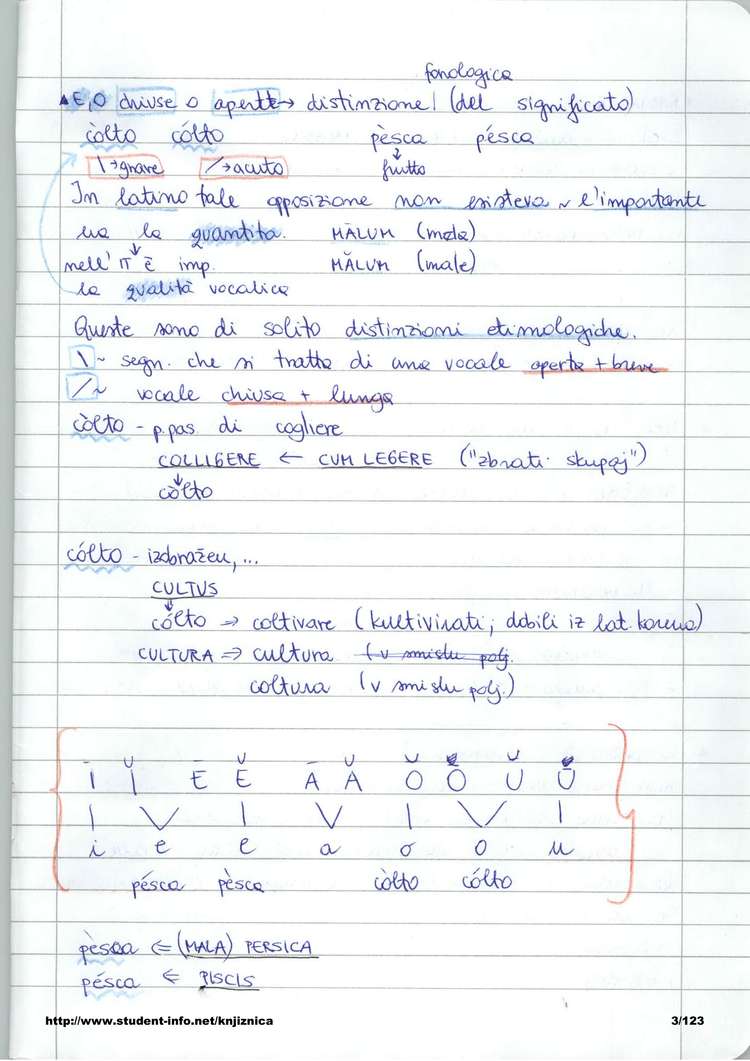 fonologica
▲E,O chiuse o aperte → distinzione | (del significato)
còlto cólto pèsca pésca
\ → grave / → acuto ↓ frutto
In latino tale opposizione non esisteva ~ l'importante
era la quantità. MĀLUM (mela)
nell' IT è imp. MĂLUM (male)
la qualità vocalica
Queste sono di solito distinzioni etimologiche.
\ ~ segn. che si tratta di una vocale aperta + breve
/ ~ vocale chiusa + lunga
còlto - p.pas. di cogliere
COLLIGERE ← CUM LEGERE ("zbrati skupaj")
↓
còlto
cólto - izobražen, ...
CULTUS
↓
cólto → coltivare (kultivirati; dobili iz lat. korena)
CULTURA ⇒ cultura (v smislu polj.
coltura (v smislu polj.)
Ī Ĭ Ē Ĕ Ā Ă Ŏ Ō Ŭ Ū
i e e a o o u
pésca pèsca còlto cólto
pèsca ⇐ (MALA) PERSICA
pésca ⇐ PISCIS
http://www.student-info.net/knjiznica 3/123